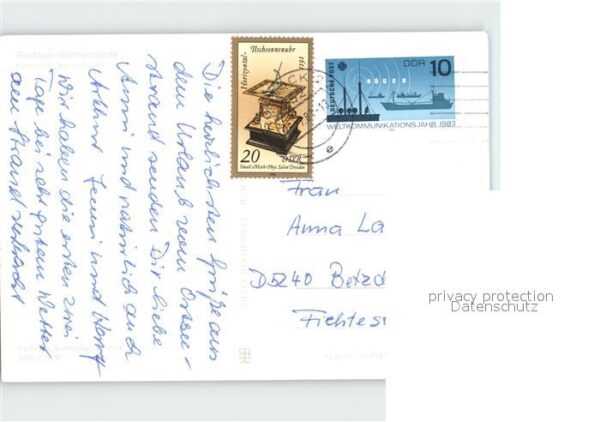 Rostock-Warnemünde
Die herzlichsten Grüße aus
dem Urlaub vom Ostsee-
strand senden Dir liebe
Anni und natürlich auch
und Horst
Wir haben die ersten zwei
Tage bei sehr gutem Wetter
am Strand verbracht
Horizontal-
Tischsonnenuhr
1611
20 DDR
Staatl. Math.-Phys. Salon Dresden
DEUTSCHE POST
DDR 10
RÜGEN
WELTKOMMUNIKATIONSJAHR 1983
Frau
Anna La
D5240 Betzd
Fichtest
privacy protection
Datenschutz